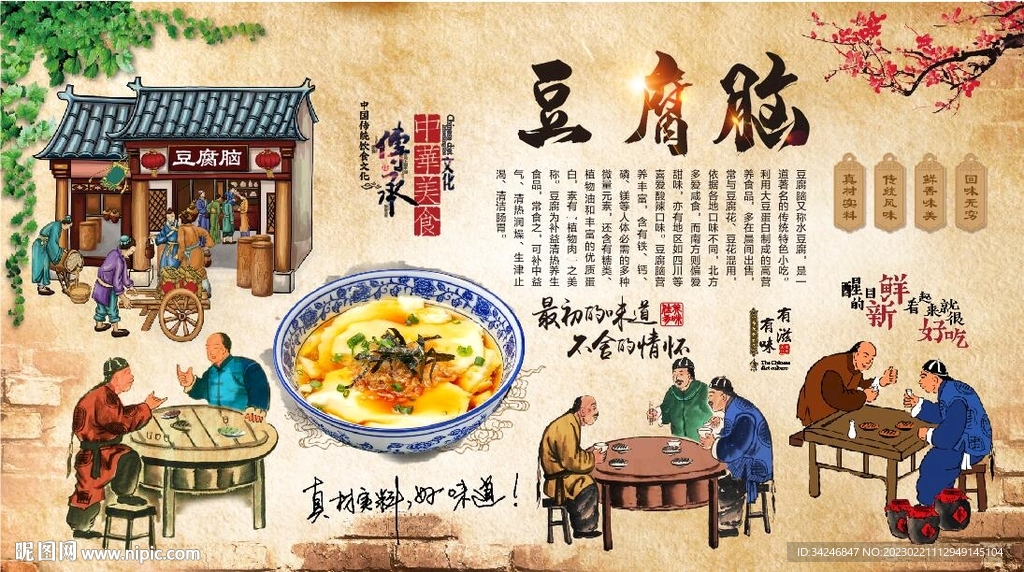 豆腐脑
豆腐脑
中国传统饮食文化
传承
中華美食
文化
豆腐脑又称水豆腐，是一
道著名的传统特色小吃。
利用大豆蛋白制成的高营
养食品，多在晨间出售，
常与豆腐花、豆花混用，
依据各地口味不同，北方
多爱咸食，而南方则偏爱
甜味，亦有地区如四川等
喜爱酸辣口味。豆腐脑营
养丰富，含有铁、钙、
磷、镁等人体必需的多种
微量元素，还含有糖类、
植物油和丰富的优质蛋
白，素有“植物肉”之美
称。豆腐为补益清热养生
食品，常食之，可补中益
气、清热润燥、生津止
渴、清洁肠胃。
真材实料
传统风味
鲜香味美
回味无穷
最初的味道
不舍的情怀
有滋
有味
The Chinese
diet culture
醒目的
鲜
新
看起来就很
好吃
真材实料,好味道!
昵图网 www.nipic.com
ID:34246847 NO:20230221112949145104